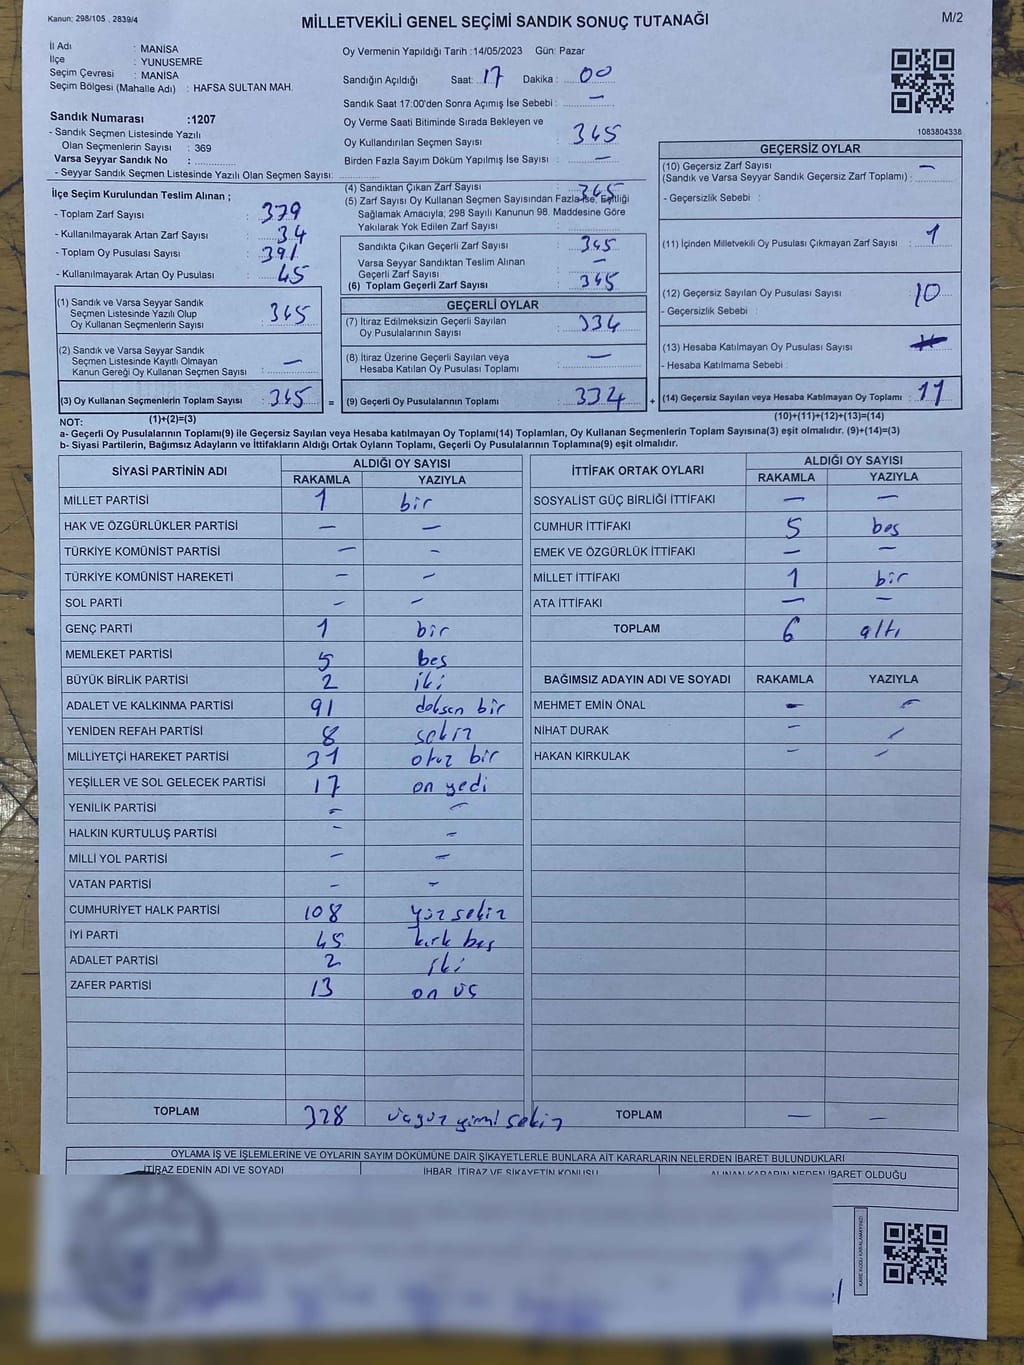 Kanun: 298/105 , 2839/4
MİLLETVEKİLİ GENEL SEÇİMİ SANDIK SONUÇ TUTANAĞI
M/2
İl Adı : MANİSA
İlçe : YUNUSEMRE
Seçim Çevresi : MANİSA
Seçim Bölgesi (Mahalle Adı) : HAFSA SULTAN MAH.
Sandık Numarası :1207
- Sandık Seçmen Listesinde Yazılı
Olan Seçmenlerin Sayısı : 369
Varsa Seyyar Sandık No :
- Seyyar Sandık Seçmen Listesinde Yazılı Olan Seçmen Sayısı:
Oy Vermenin Yapıldığı Tarih :14/05/2023 Gün: Pazar
Sandığın Açıldığı Saat: 17 Dakika : 00
Sandık Saat 17:00'den Sonra Açımış İse Sebebi : —
Oy Verme Saati Bitiminde Sırada Bekleyen ve
Oy Kullandırılan Seçmen Sayısı : 345
Birden Fazla Sayım Döküm Yapılmış İse Sayısı : —
1083804338
İlçe Seçim Kurulundan Teslim Alınan ;
- Toplam Zarf Sayısı : 379
- Kullanılmayarak Artan Zarf Sayısı : 34
- Toplam Oy Pusulası Sayısı : 391
- Kullanılmayarak Artan Oy Pusulası : 45
(1) Sandık ve Varsa Seyyar Sandık
Seçmen Listesinde Yazılı Olup
Oy Kullanan Seçmenlerin Sayısı : 345
(2) Sandık ve Varsa Seyyar Sandık
Seçmen Listesinde Kayıtlı Olmayan
Kanun Gereği Oy Kullanan Seçmen Sayısı : —
(3) Oy Kullanan Seçmenlerin Toplam Sayısı : 345 =
(4) Sandıktan Çıkan Zarf Sayısı : 345
(5) Zarf Sayısı Oy Kullanan Seçmen Sayısından Fazla İse, Eşitliği
Sağlamak Amacıyla; 298 Sayılı Kanunun 98. Maddesine Göre
Yakılarak Yok Edilen Zarf Sayısı :
Sandıkta Çıkan Geçerli Zarf Sayısı : 345
Varsa Seyyar Sandıktan Teslim Alınan
Geçerli Zarf Sayısı : —
(6) Toplam Geçerli Zarf Sayısı : 345
GEÇERLİ OYLAR
(7) İtiraz Edilmeksizin Geçerli Sayılan
Oy Pusulalarının Sayısı : 334
(8) İtiraz Üzerine Geçerli Sayılan veya
Hesaba Katılan Oy Pusulası Toplamı : —
(9) Geçerli Oy Pusulalarının Toplamı : 334 +
GEÇERSİZ OYLAR
(10) Geçersiz Zarf Sayısı —
(Sandık ve Varsa Seyyar Sandık Geçersiz Zarf Toplamı) :
- Geçersizlik Sebebi :
(11) İçinden Milletvekili Oy Pusulası Çıkmayan Zarf Sayısı : 1
(12) Geçersiz Sayılan Oy Pusulası Sayısı : 10
- Geçersizlik Sebebi :
(13) Hesaba Katılmayan Oy Pusulası Sayısı :
- Hesaba Katılmama Sebebi :
(14) Geçersiz Sayılan veya Hesaba Katılmayan Oy Toplamı : 11
NOT: (1)+(2)=(3) (10)+(11)+(12)+(13)=(14)
a- Geçerli Oy Pusulalarının Toplamı(9) ile Geçersiz Sayılan veya Hesaba katılmayan Oy Toplamı(14) Toplamları, Oy Kullanan Seçmenlerin Toplam Sayısına(3) eşit olmalıdır. (9)+(14)=(3)
b- Siyasi Partilerin, Bağımsız Adayların ve İttifakların Aldığı Ortak Oyların Toplamı, Geçerli Oy Pusulalarının Toplamına(9) eşit olmalıdır.
SİYASİ PARTİNİN ADI ALDIĞI OY SAYISI
RAKAMLA YAZIYLA
MİLLET PARTİSİ 1 bir
HAK VE ÖZGÜRLÜKLER PARTİSİ — —
TÜRKİYE KOMÜNİST PARTİSİ — —
TÜRKİYE KOMÜNİST HAREKETİ — —
SOL PARTİ — —
GENÇ PARTİ 1 bir
MEMLEKET PARTİSİ 5 beş
BÜYÜK BİRLİK PARTİSİ 2 iki
ADALET VE KALKINMA PARTİSİ 91 doksan bir
YENİDEN REFAH PARTİSİ 8 sekiz
MİLLİYETÇİ HAREKET PARTİSİ 31 otuz bir
YEŞİLLER VE SOL GELECEK PARTİSİ 17 on yedi
YENİLİK PARTİSİ — —
HALKIN KURTULUŞ PARTİSİ — —
MİLLİ YOL PARTİSİ — —
VATAN PARTİSİ — —
CUMHURİYET HALK PARTİSİ 108 yüz sekiz
İYİ PARTİ 45 kırk beş
ADALET PARTİSİ 2 iki
ZAFER PARTİSİ 13 on üç
TOPLAM 328 üçyüz yirmi sekiz
İTTİFAK ORTAK OYLARI ALDIĞI OY SAYISI
RAKAMLA YAZIYLA
SOSYALİST GÜÇ BİRLİĞİ İTTİFAKI — —
CUMHUR İTTİFAKI 5 beş
EMEK VE ÖZGÜRLÜK İTTİFAKI — —
MİLLET İTTİFAKI 1 bir
ATA İTTİFAKI — —
TOPLAM 6 altı
BAĞIMSIZ ADAYIN ADI VE SOYADI RAKAMLA YAZIYLA
MEHMET EMİN ÖNAL — —
NİHAT DURAK — —
HAKAN KIRKULAK — —
TOPLAM — —
OYLAMA İŞ VE İŞLEMLERİNE VE OYLARIN SAYIM DÖKÜMÜNE DAİR ŞİKAYETLERLE BUNLARA AİT KARARLARIN NELERDEN İBARET BULUNDUKLARI
İTİRAZ EDENİN ADI VE SOYADI İHBAR, İTİRAZ VE ŞİKAYETİN KONUSU ALINAN KARARIN NEDEN İBARET OLDUĞU
KARE KODU KARALAMAYINIZ!